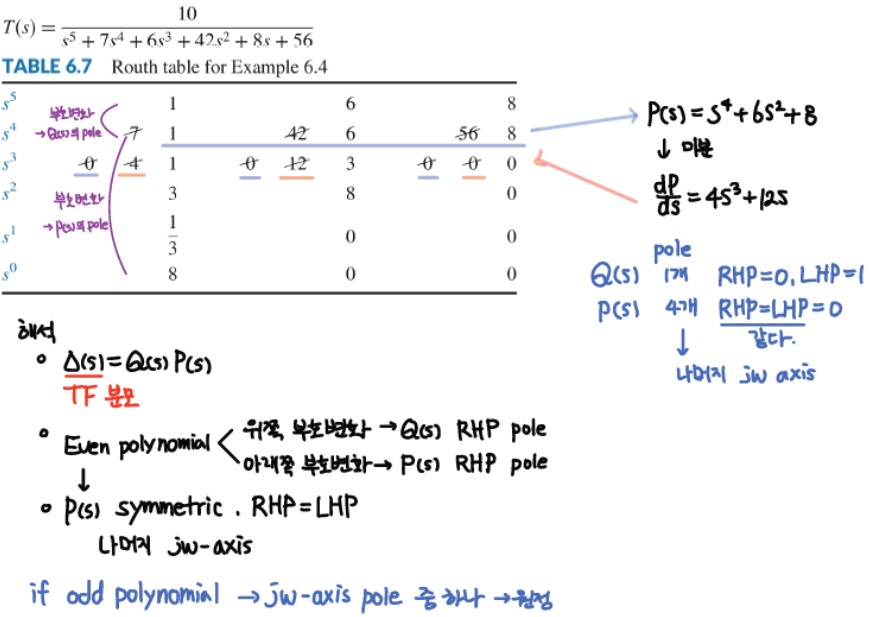 T(s) = 10 / (s⁵ + 7s⁴ + 6s³ + 42s² + 8s + 56)
TABLE 6.7 Routh table for Example 6.4
s⁵ 1 6 8
s⁴ 7 1 42 6 56 8
s³ 0 4 1 0 12 3 0 0 0
s² 3 8 0
s¹ 1/3 0 0
s⁰ 8 0 0
부호변화
→Q(s)의 pole
부호변화
→P(s)의 pole
P(s) = s⁴+6s²+8
↓ 미분
dP/ds = 4s³+12s
pole
Q(s) 1개 RHP=0, LHP=1
P(s) 4개 RHP=LHP=0
↓ 같다.
나머지 jw axis
해석
Δ(s)=Q(s) P(s)
TF 분모
Even polynomial
위쪽 부호변화 → Q(s) RHP pole
아래쪽 부호변화 → P(s) RHP pole
↓
P(s) symmetric. RHP=LHP
나머지 jw-axis
if odd polynomial → jw-axis pole 중 하나 → 원점